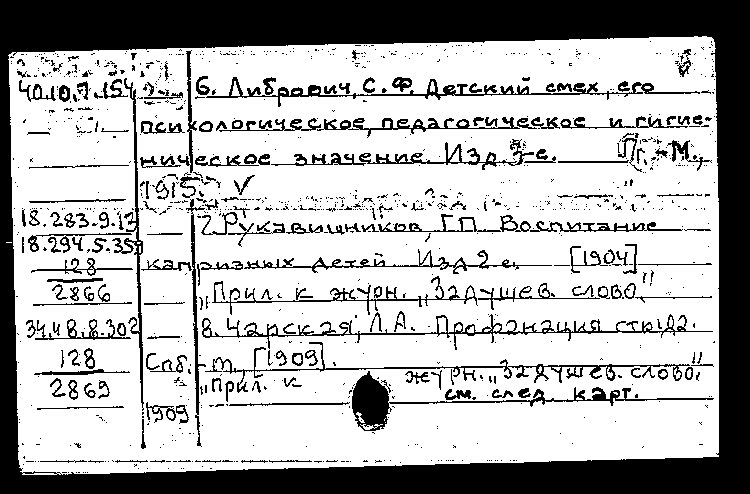 40.10.7.154 6. Либрович, С.Ф. Детский смех, его
психологическое, педагогическое и гигие-
ническое значение. Изд. 3-е. Пг.-М.,
1915. V
18.283.9.13 7. Рукавишников, Г.П. Воспитание
18.294.5.357
128 капризных детей. Изд 2 е. [1904]
2866 „Прил. к журн. „Задушев. слово"
34.48.8.302 8. Чарская, Л.А. Профанация стыда.
128 Спб. -М., [1909].
2869 „Прил. к журн. „Задушев. слово"
1909 см. след. карт.